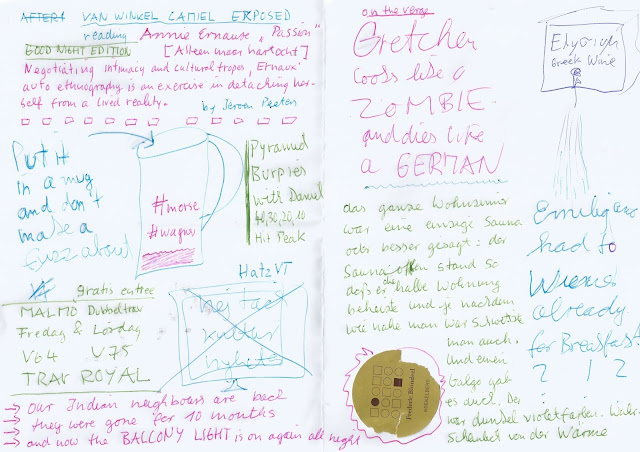 AFTER VAN WINKEL CAMIEL EXPOSED
reading Annie Ernause „Passion"
GOOD NIGHT EDITION [Alleen maar hartocht]
Negotiating intimacy and cultural tropes, Ernaux'
auto ethnography is an exercise in detaching her-
self from a lived reality.
by Jeroen Peeten
Put it
in a mug
and don't
make a
fuzz about
#morse
#wagner
Pyramid
Burpies
with Daniel
40,30,20,10
Hit Peak
gratis entree
MALMÖ Dubbeltrav
Fredag & Lördag
V64 V75
TRAV ROYAL
Hatz VT
Nej tack
kultur
nyheter
our Indian neighbours are back
they were gone for 10 months
and now the BALCONY LIGHT is on again all night
on the verge
Gretchen
looks like a
ZOMBIE
and dies like
a GERMAN
Greek Wine
das ganze Wohnzimmer
war eine einzige Sauna
oder besser gesagt: der
Sauna ofen stand so
daß er die halbe Wohnung
beheizte und je nachdem
wie nahe man war schwitzte
man auch.
Und einen
Galgo gab
es auch. Der
war dunkel violettfarben. Wahr-
scheinlich von der Wärme
had to
already
for Breakfast
? ! ?
Frederic Blondeel